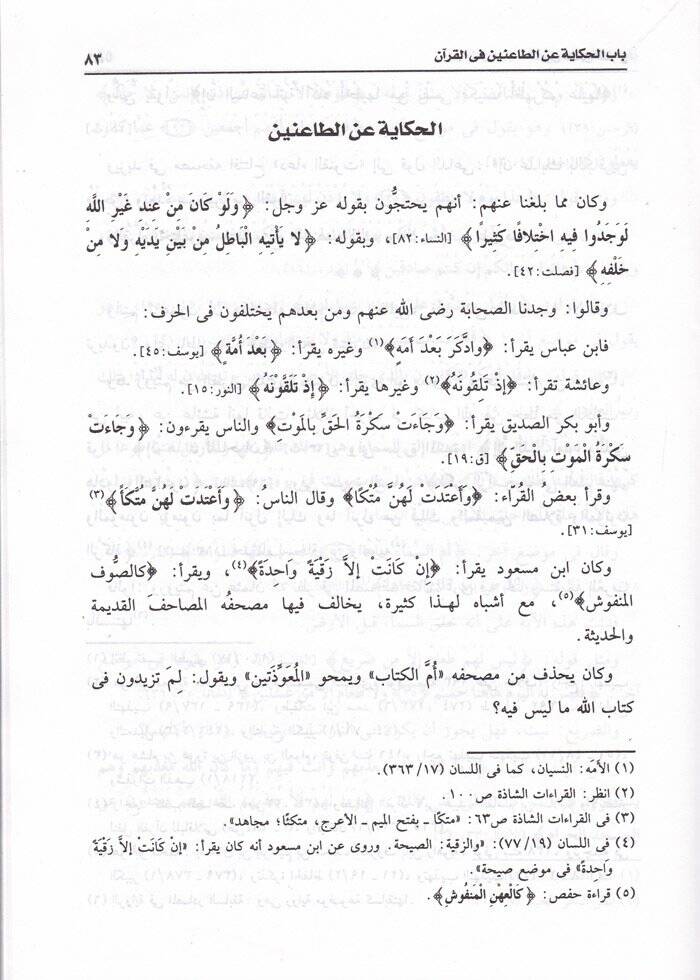 باب الحكاية عن الطاعنين فى القرآن ٨٣
الحكاية عن الطاعنين
وكان مما بلغنا عنهم: أنهم يحتجُّون بقوله عز وجل: ﴿وَلَوْ كَانَ مِنْ عِندِ غَيْرِ اللَّهِ
لَوَجَدُوا فِيهِ اخْتلافًا كَثيرًا﴾ [النساء:٨٢]، وبقوله: ﴿لا يَأْتِيهِ الْبَاطِلُ مِنْ بَيْنِ يَدَيْهِ وَلا مِنْ
خَلْفِهِ﴾ [فصلت:٤٢].
وقالوا: وجدنا الصحابة رضى الله عنهم ومن بعدهم يختلفون فى الحرف:
فابن عباس يقرأ: ﴿وادَّكَرَ بَعْدَ أمَه﴾(١) وغيره يقرأ: ﴿بَعْدَ أُمَّةٍ﴾ [يوسف:٤٥].
وعائشة تقرأ: ﴿إِذْ تَلِقُونَهُ﴾(٢) وغيرها يقرأ: ﴿إِذْ تَلَقَّوْنَهُ﴾ [النور:١٥].
وأبو بكر الصديق يقرأ: ﴿وَجَاءَتْ سكْرَةُ الحَقِّ بالمَوْتِ﴾ والناس يقرءون: ﴿وَجَاءَتْ
سَكْرَةُ الْمَوْتِ بِالْحَقِّ﴾ [ق:١٩].
وقرأ بعض القُراء: ﴿وأَعتدَت لَهُنَّ مُتْكًا﴾ وقال الناس: ﴿وَأَعْتَدَتْ لَهُنَّ مُتَّكَأً﴾(٣)
[يوسف:٣١].
وكان ابن مسعود يقرأ: ﴿إِن كَانَتْ إِلاَّ زَقْيَةً وَاحِدَةً﴾(٤)، ويقرأ: ﴿كالصُّوف
المنفُوش﴾(٥)، مع أشباه لهذا كثيرة، يخالف فيها مصحفُه المصاحفَ القديمة
والحديثة.
وكان يحذف من مصحفه «أُمَّ الكتاب» ويمحو «المُعَوِّذَتين» ويقول: لِمَ تزيدون فى
كتاب الله ما ليس فيه؟
(١) الأمَه: النسيان، كما فى اللسان (٣٦٣/١٧).
(٢) انظر: القراءات الشاذة ص١٠٠.
(٣) فى القراءات الشاذة ص٦٣: «متكًا ـ بفتح الميم ـ الأعرج، متكئًا؛ مجاهد».
(٤) فى اللسان (٧٧/١٩): «والزقية: الصيحة. وروى عن ابن مسعود أنه كان يقرأ: «إن كَانَتْ إلاَّ زَقْيَةً
وَاحدةً» فى موضع صيحة».
(٥) قراءة حفص: ﴿كَالْعِهْنِ الْمَنْفُوشِ﴾.